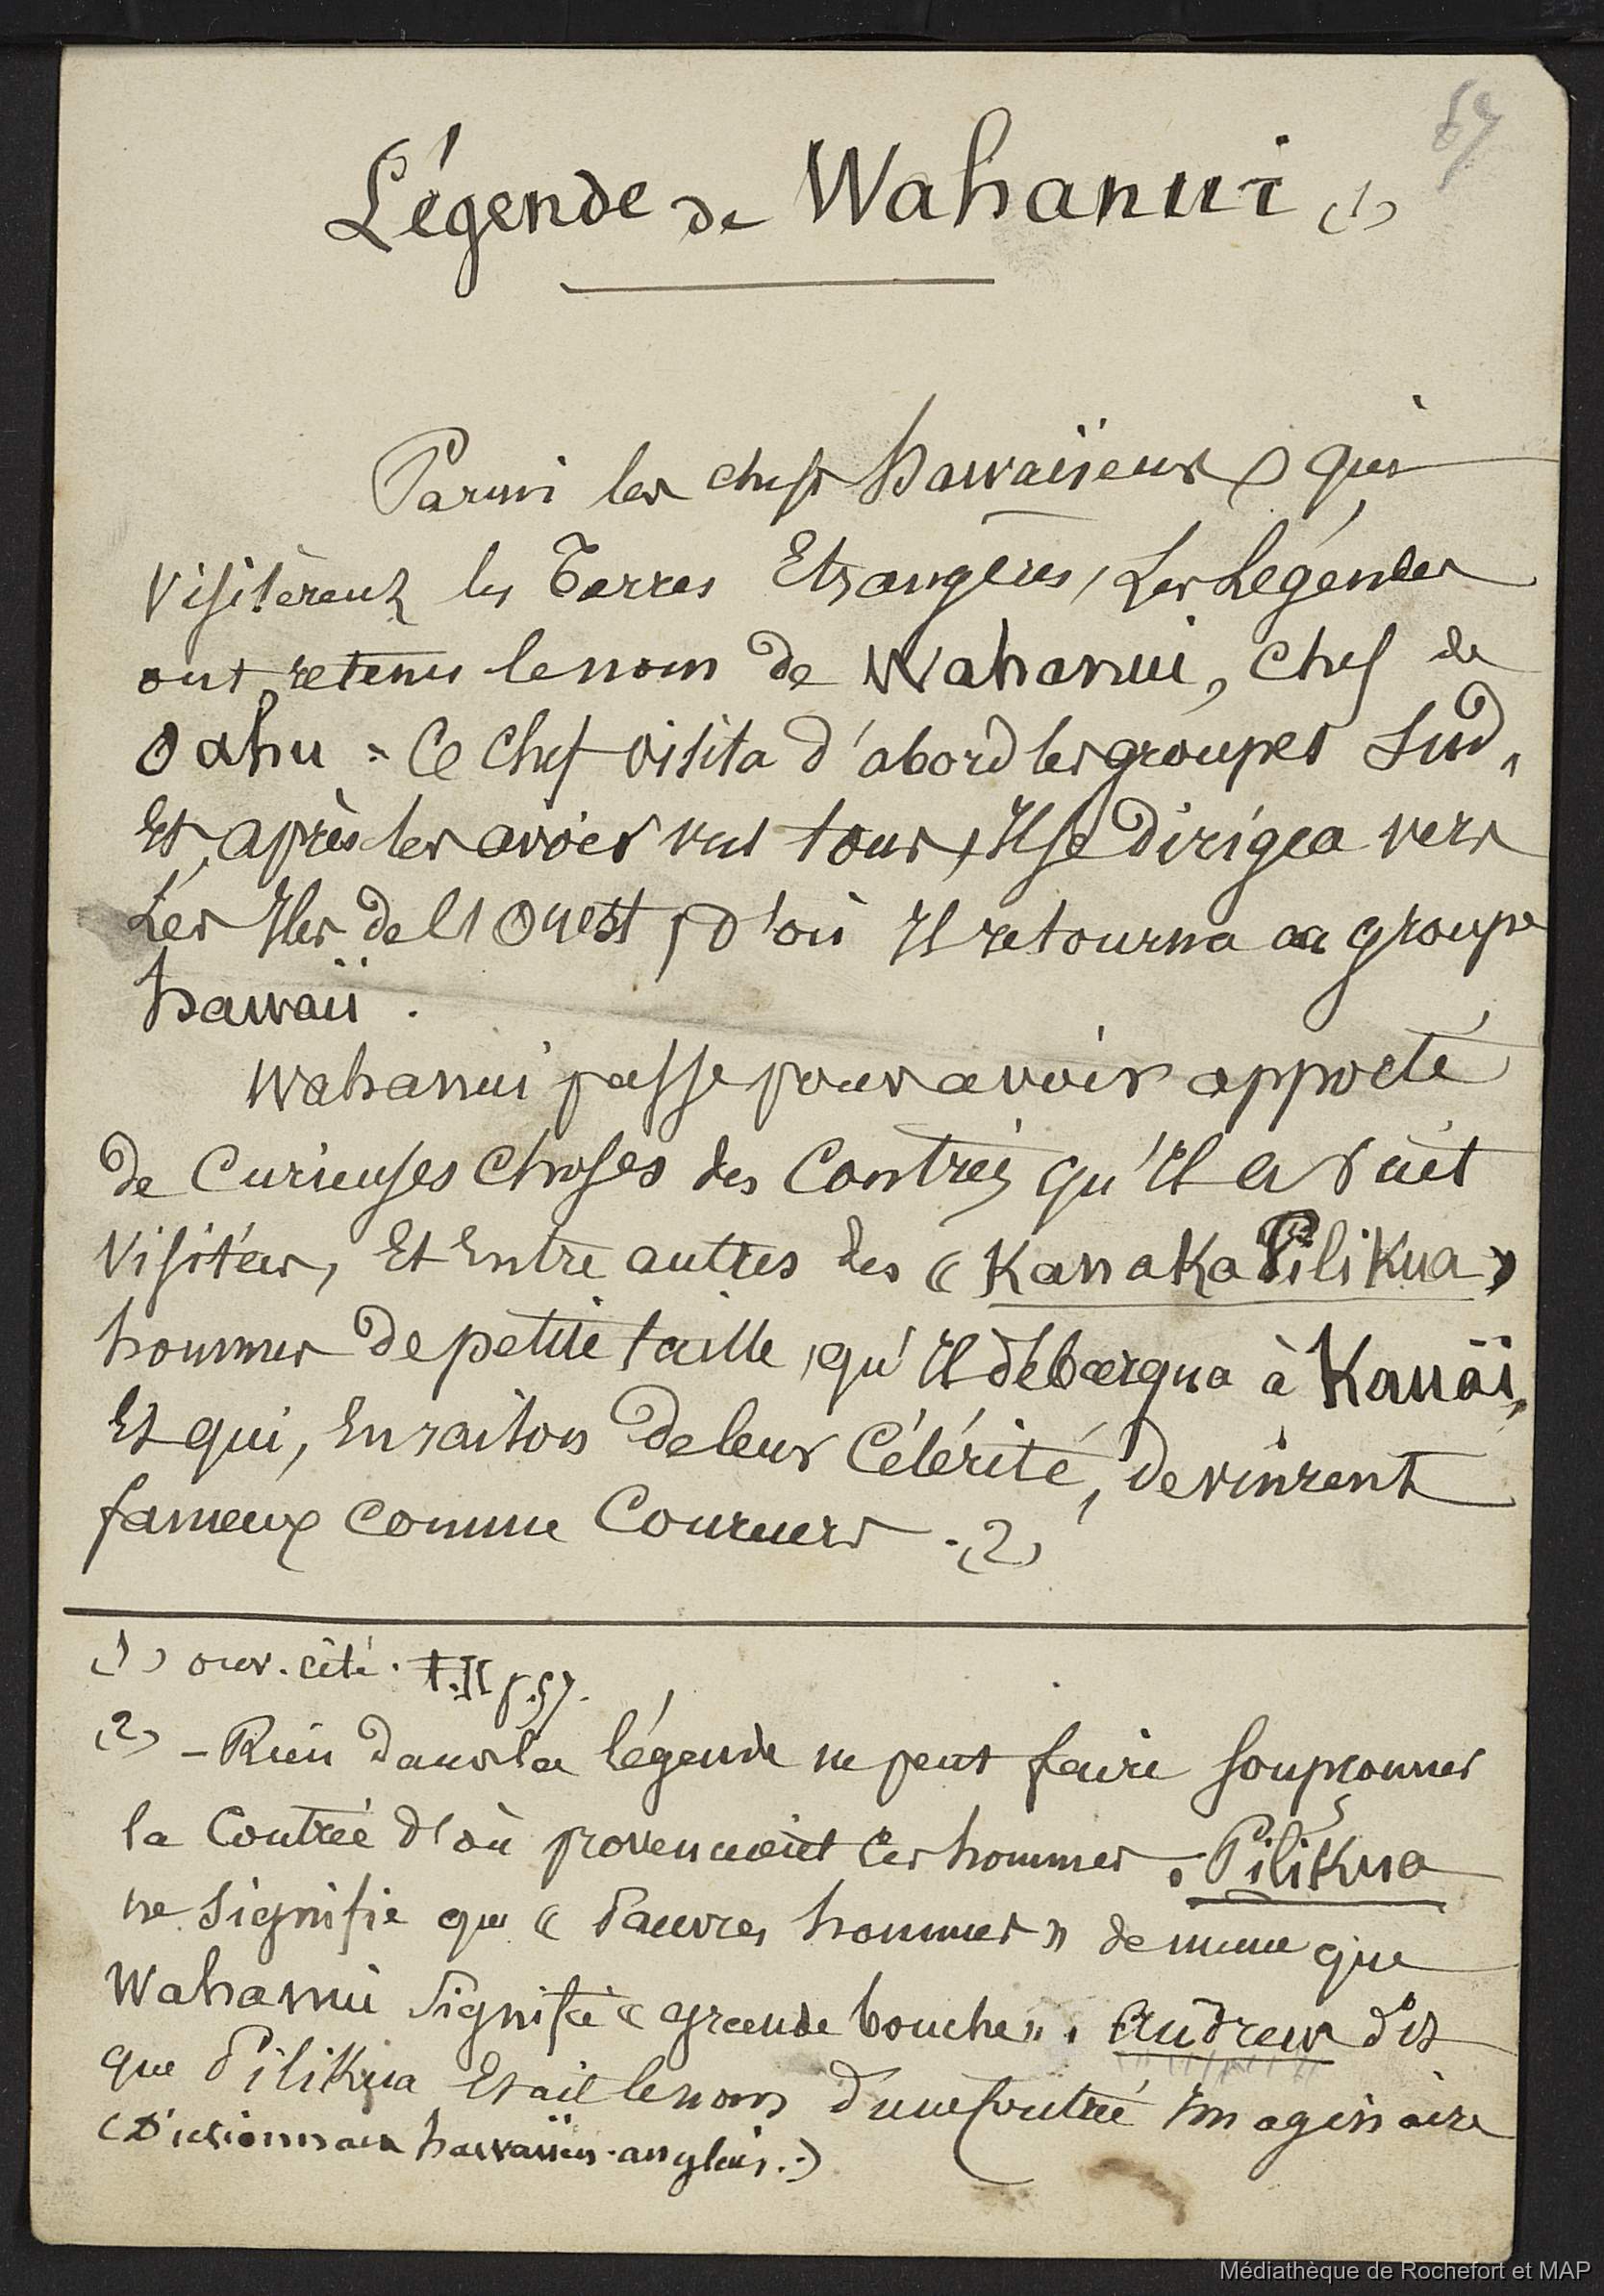 67
Légende de Wahanui (1)
Parmi les chefs hawaiiens qui
visitèrent les Terres Etrangères, Les Légendes
ont retenu le nom de Wahanui, chef de
Oahu = Ce chef visita d'abord les groupes Sud,
Et, après les avoir vus tous, Il se dirigea vers
Les Iles de l'Ouest, d'où Il retourna au groupe
hawaii.
Wahanui passe pour avoir apporté
de curieuses choses des Contrées qu'Il avait
visitées, Et Entre autres des « Kanaka Pilikua »
hommes de petite taille, qu'Il débarqua à Kauaï,
Et qui, En raison de leur Célérité, devinrent
fameux comme Coureurs. (2)
(1) ouv. cité. t.II p.57.
(2) - Rien dans la légende ne peut faire soupçonner
la Contrée d'où provenaient ces hommes. Pilikua
ne signifie que « Pauvres hommes » de meme que
Wahanui signifie « grande bouche ». Andrew dit
que Pilikua Etait le nom d'une Contrée Imaginaire
(Dictionnaire hawaiien-anglais.)
Médiathèque de Rochefort et MAP